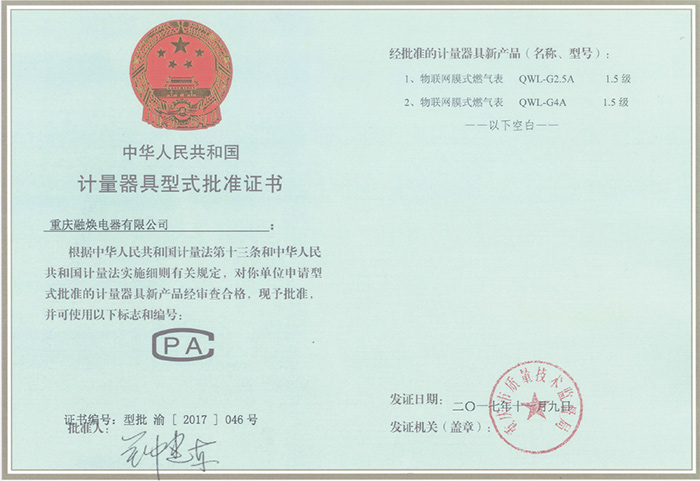 中华人民共和国
计量器具型式批准证书
重庆融焕电器有限公司：
根据中华人民共和国计量法第十三条和中华人民
共和国计量法实施细则有关规定，对你单位申请型
式批准的计量器具新产品经审查合格，现予批准，
并可使用以下标志和编号：
CPA
证书编号：型批 渝 [ 2017 ] 046 号
批准人：
经批准的计量器具新产品（名称、型号）：
1、物联网膜式燃气表 QWL-G2.5A 1.5 级
2、物联网膜式燃气表 QWL-G4A 1.5 级
——以下空白——
发证日期：二〇一七年十一月九日
发证机关（盖章）：
重庆市质量技术监督局